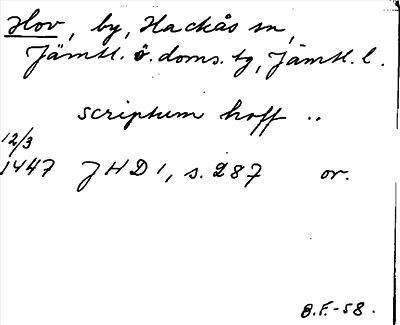 Hov, by, Hackås sn,
Jämtl. ö. doms. tg, Jämtl. l.
scriptum hoff ..
12/3
1447 JHD 1, s. 287 or.
B.F.-58.